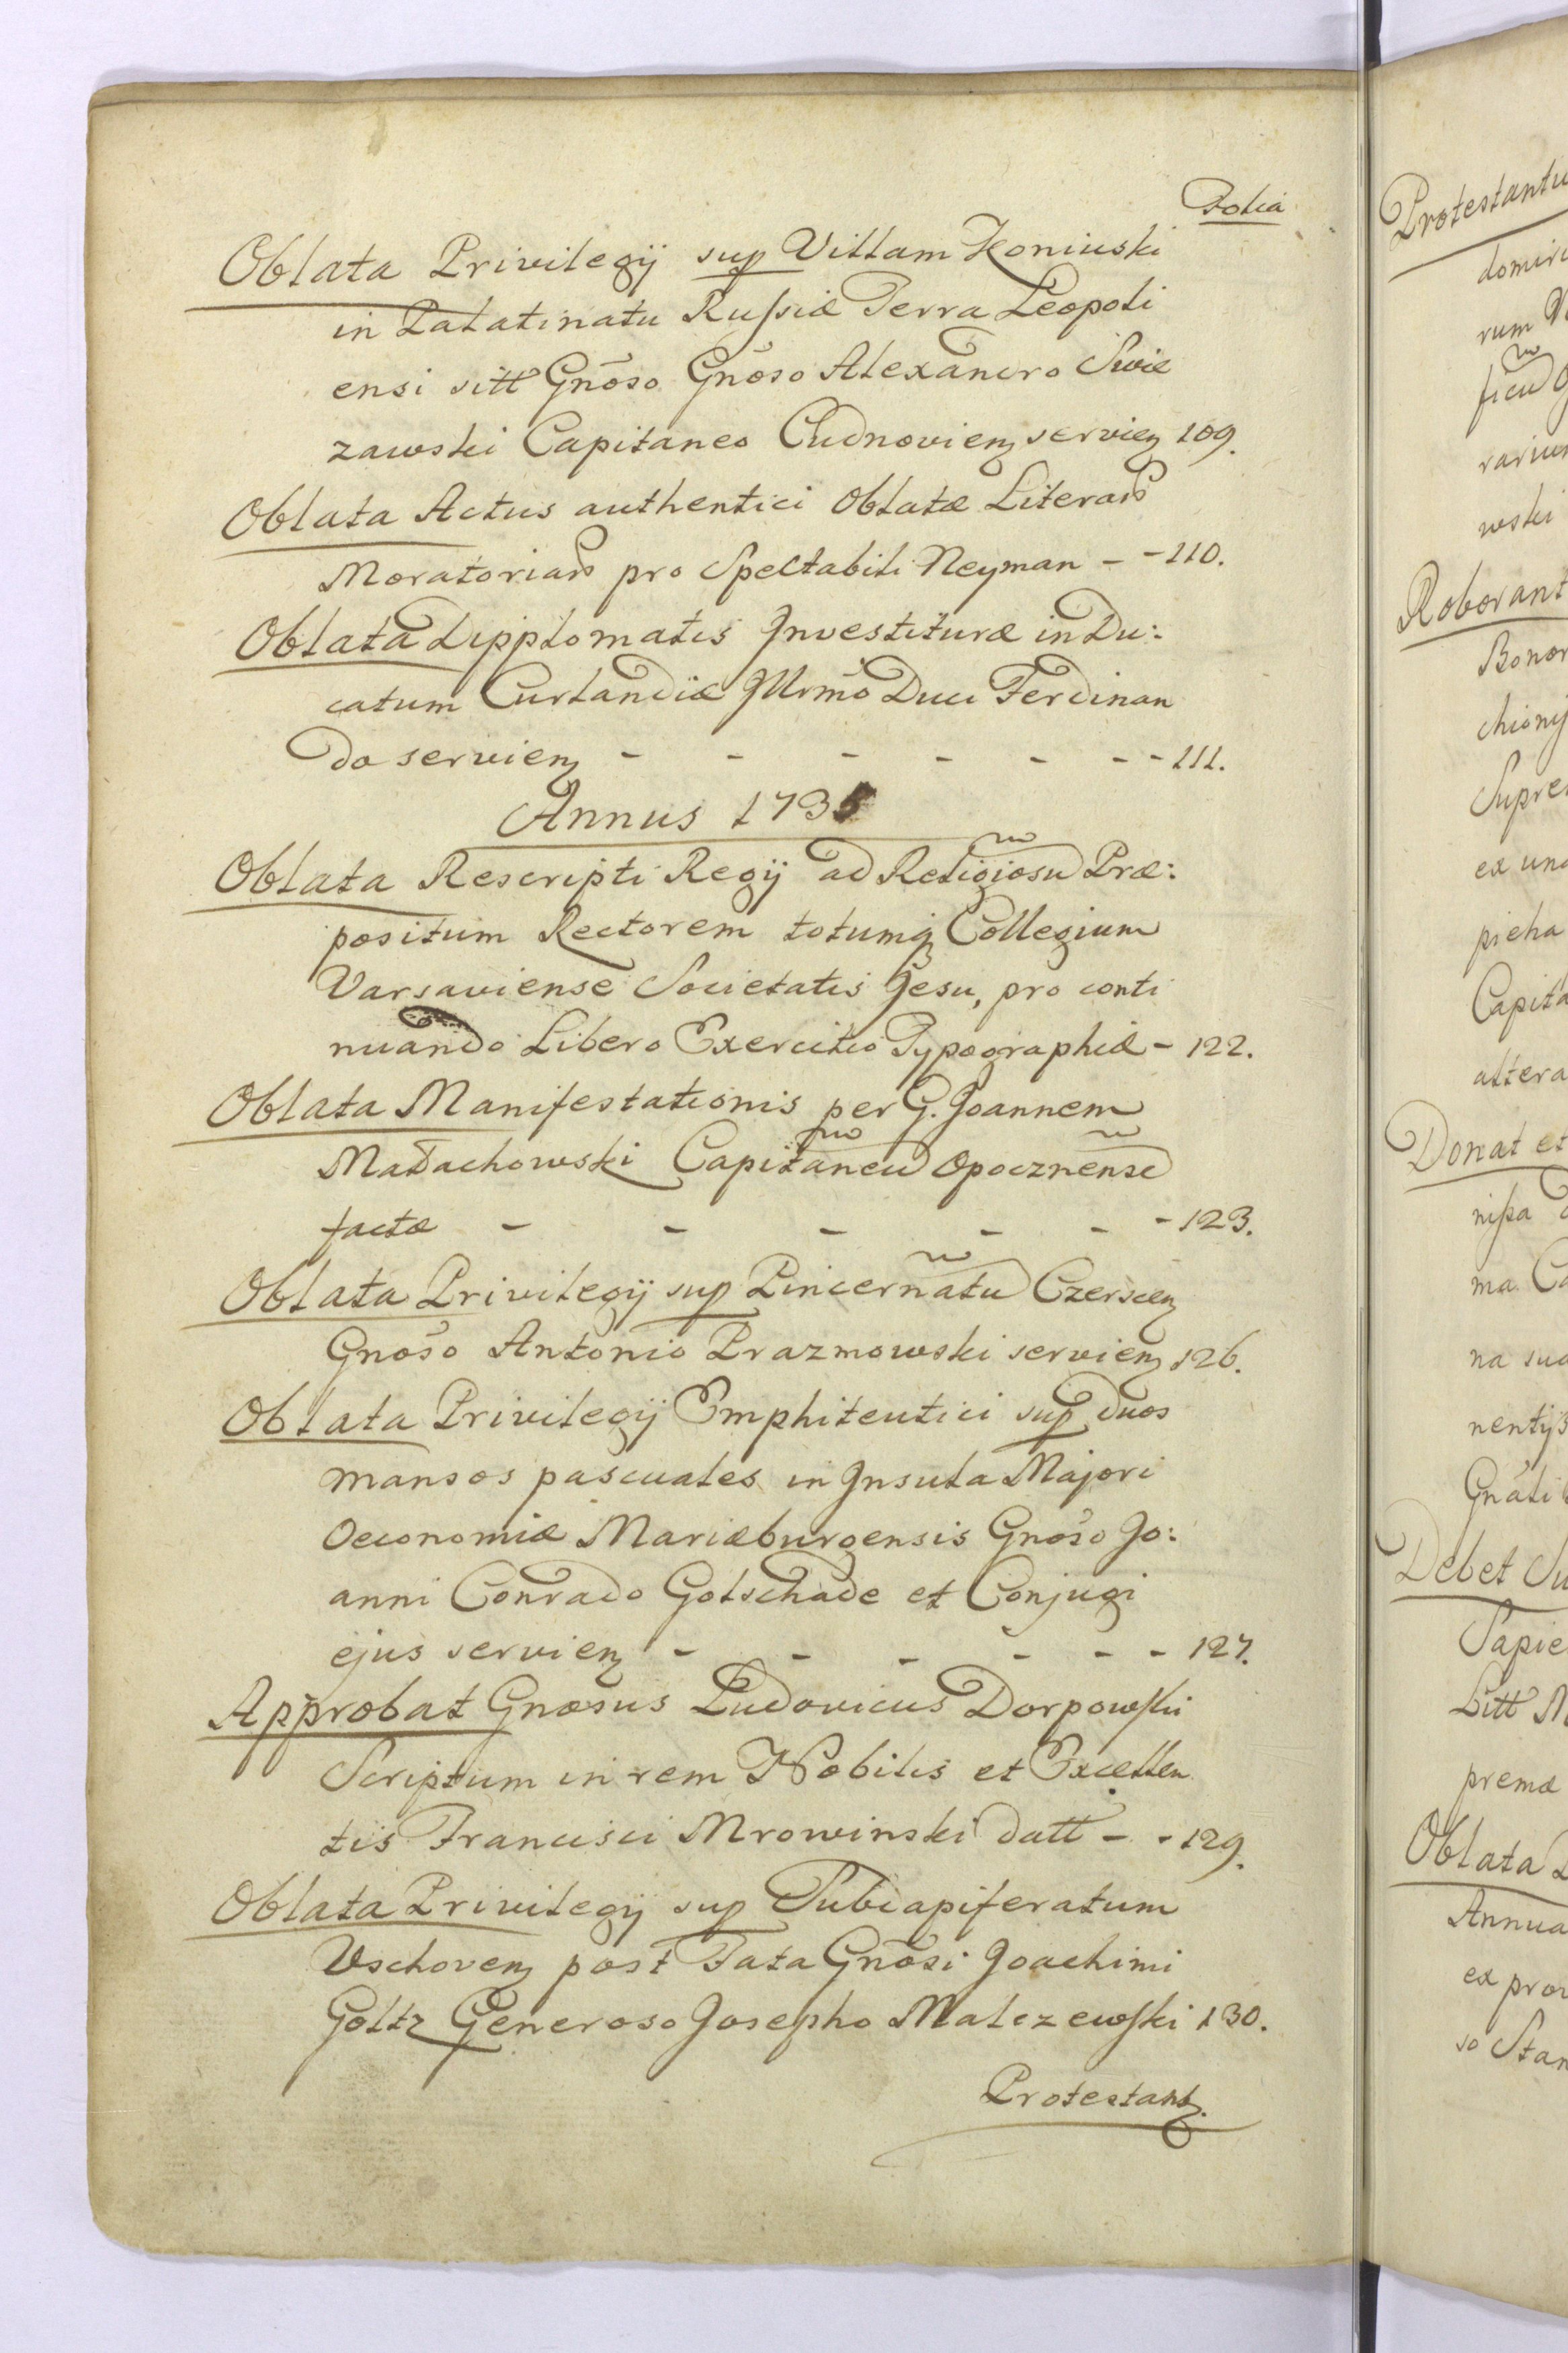 Folia
Oblata Privilegij sup Villam Koniuski
in Palatinatu Russiæ Terra Leopoli
ensi sitt Gnõso Gnõso Alexandro Swie
zawski Capitaneo Cudnovien servien 109.
Oblata Actus authentici Oblatæ Literaru
Moratoriaru pro Spectabili Neyman - - 110.
Oblata Dipplomatis Investituræ in Du:
catum Curlandiæ Illrmo Duci Ferdinan
do servien - - - - - - - 111.
Annus 1735
Oblata Rescripti Regij ad Religiosu Præ:
positum Rectorem totumq Collegium
Varsaviense Societatis Jesu, pro conti
nuando Libero Exercitio Typographiæ - 122.
Oblata Manifestationis per G. Joannem
Małachowski Capitaneu Opocznense
factæ - - - - - - 123.
Oblata Privilegij sup Pincernatu Czerscien
Gnoso Antonio Prazmowski servien 126.
Oblata Privilegij Emphiteutici sup duos
mansos pascuales in Insula Majori
Oeconomiæ Mariæburgensis Gnoso Jo:
anni Conrado Gotschade et Conjugi
ejus servien - - - - - - 127.
Approbat Gnosus Ludovicus Dorpowski
Scriptum in rem Nobilis et Excellen
tis Francisci Mrowinski datt - - 129.
Oblata Privilegij sup Subdapiferatum
Vschoven post Fata Gnõsi Joachimi
Goltz Generoso Josepho Malczewski 130.
Protestant.
Protestantu
domiri
rum
ficu
rariu
wski
Roborant
Bonor
chiony
Supre
ex una
pieha
Capita
altera
Donat et
nissa
ma Ca
na sua
nentijs
Gnãli
Debet Su
Sapie
Litt M
premæ
Oblata
Annua
ex prov
so Stan